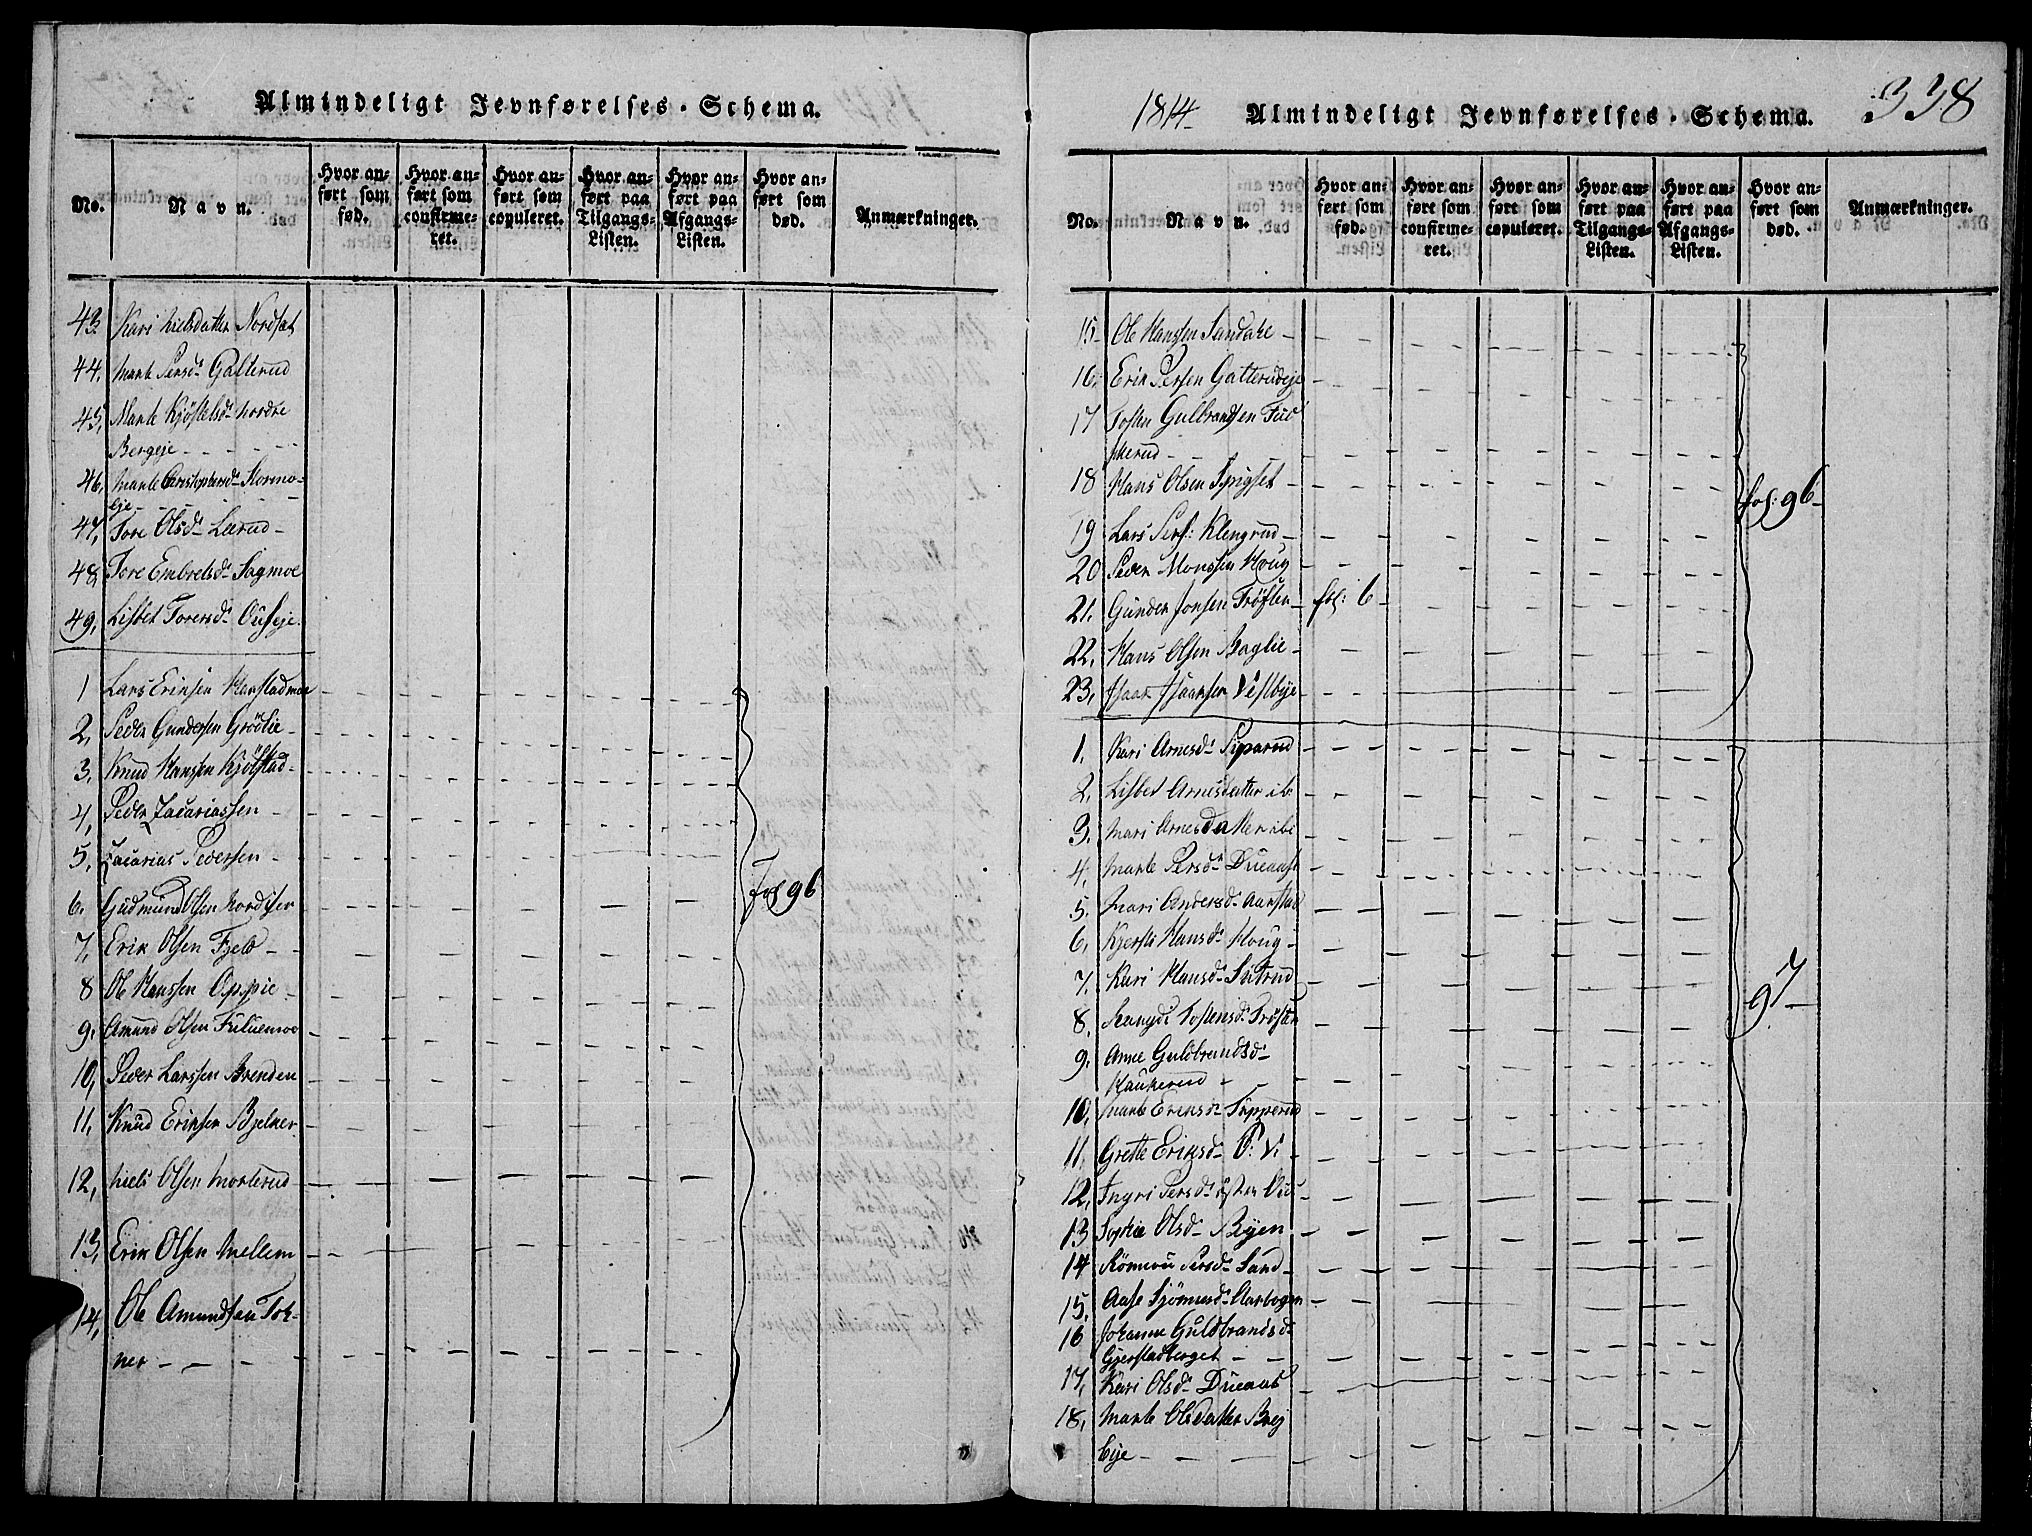 Almindeligt Jevnførelses-Schema.
No.
Navn.
Hvor anført som fød.
Hvor anført som confirmeret.
Hvor anført som copuleret.
Hvor anført paa Tilgangs-Listen.
Hvor anført paa Afgangs-Listen.
Hvor anført som død.
Anmærkninger.
43. Kari Nielsdatter Nordset
44. Marte Persd. Galterud
45. Marte Kjöstelsd. Nordre
Bergeje
46. Marte Christophersd. Kormo-
eje
47. Tore Olsd. Lærud
48. Tore Embretsd. Sagmoe
49. Lisbet Torersd. Ouseje
1 Lars Eriksen Harstadmoe
2. Peder Gundersen Grödlie
3. Knud Hansen Kjölstad
4. Peder Zacariassen
5. Zacarias Pedersen
6. Gudmund Olsen Nordiser
7. Erik Olsen Fjeld
8 Ole Hanssen Oppie
9. Amund Olsen Fuluemoe
10. Peder Larssen Brenden
11. Knud Eriksen Bjelker
12. Niels Olsen Morterud
13. Erik Olsen Mellem
14. Ole Amundsen Tok-
ner
Fol 96
1814
Almindeligt Jevnførelses-Schema.
338
No.
Navn.
Hvor anført som fød.
Hvor anført som confirmeret.
Hvor anført som copuleret.
Hvor anført paa Tilgangs-Listen.
Hvor anført paa Afgangs-Listen.
Hvor anført som død.
Anmærkninger.
15 Ole Hanssen Sandake
16. Erik Persen Galterudeje
17 Tosten Gulbrandsen Fuu
skerud
18 Hans Olsen Spigset
fol: 96
19 Lars Pers: Klengrud
20 Peder Monssen Houg
21. Gunder Jonsen Tröften fol: 6
22. Hans Olsen Baglie
23. Isaac Isaacsen Vestbye
1. Kari Arnesd. Siparud
2. Lisbet Arnesdatter ib
3. Mari Arnesdatter ibi
4. Marte Persd. Dueaast
5. Mari Andersd. Aarstad
6. Kjersti Hansd. Houg
7. Kari Hansd. Sätrud
97
8. Rangdi Tostensd. Tröften
9. Anne Guldbrandsd.
Haukerud
10. Marte Eriksd. Topperud
11. Grette Eriksd.
12. Ingri Persd. östen Aas
13 Sophie Olsd. Byen
14 Römoue Persd. Sand
15. Aase Sjönnesd. Aarbogen
16 Johanne Guldbrandsd.
Gjerstadberget
17. Kari Olsd. Dueaas
18. Marte Olsdatter Berg
Eje